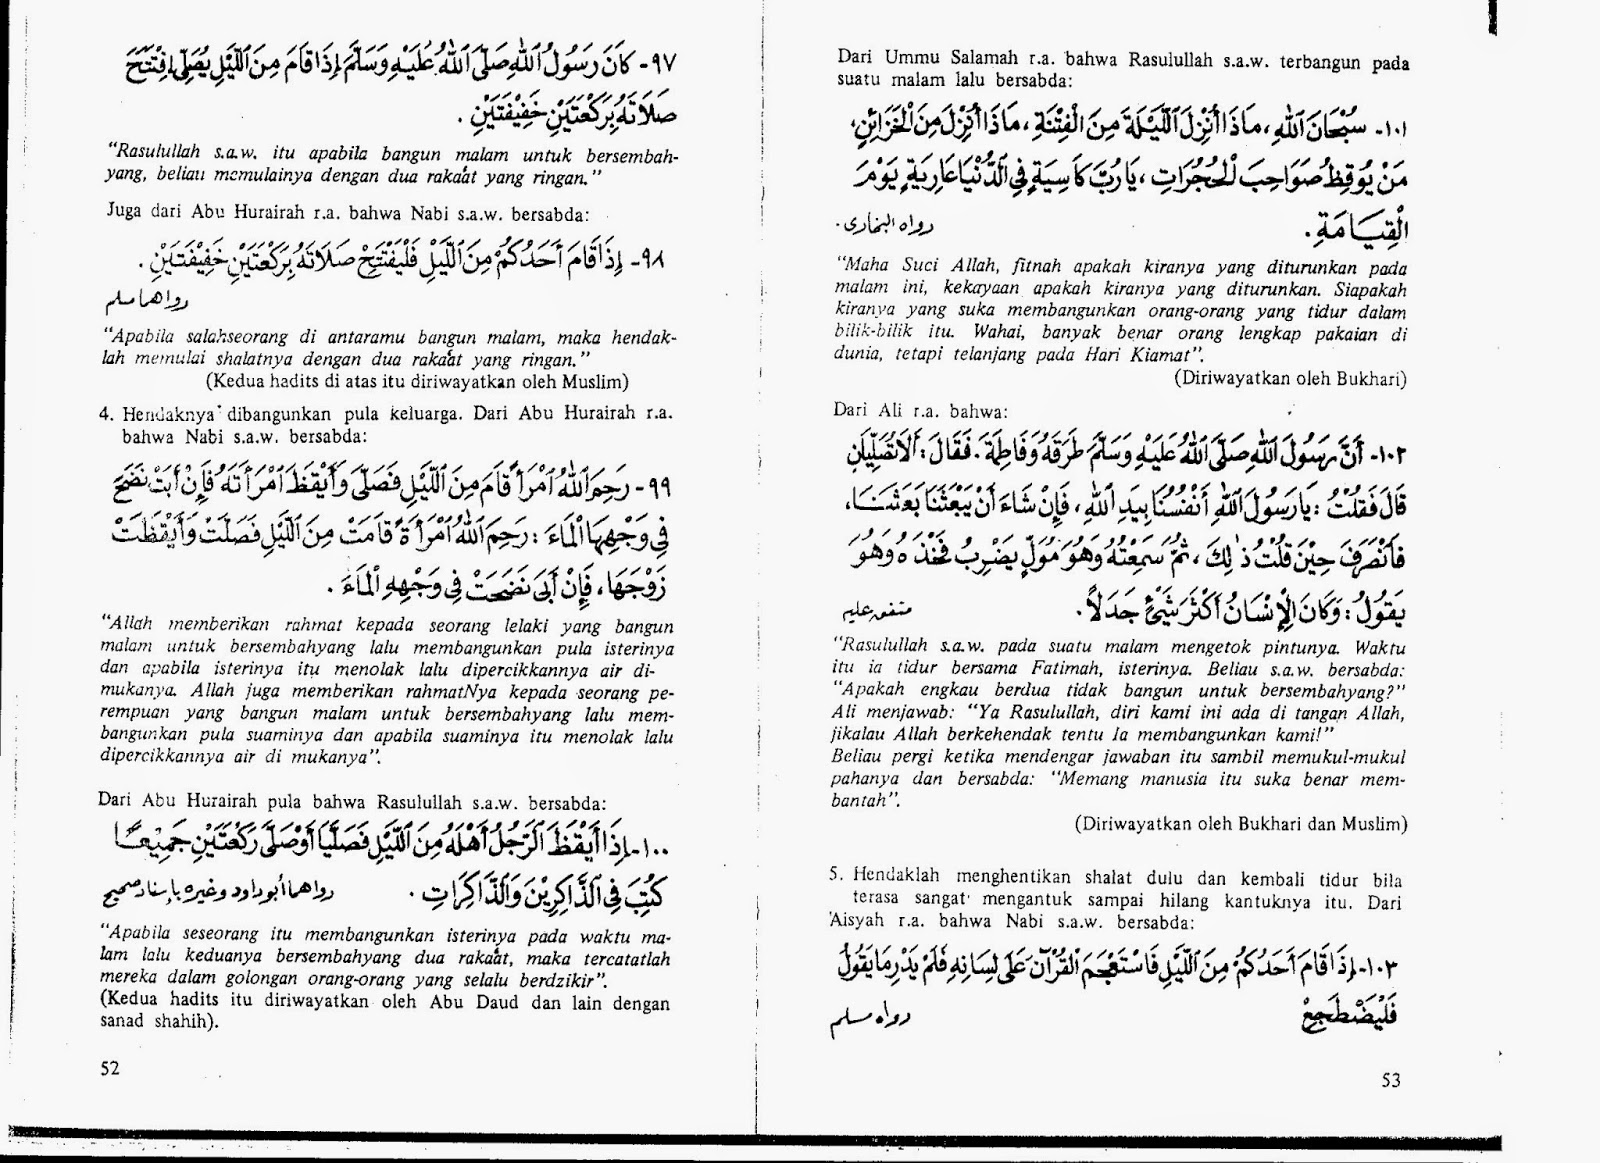 ٩٧- كَانَ رَسُولُ اللهِ صَلَّى اللهُ عَلَيْهِ وَسَلَّمَ إِذَا قَامَ مِنَ اللَّيْلِ يُصَلِّى افْتَتَحَ
صَلَاتَهُ بِرَكْعَتَيْنِ خَفِيْفَتَيْنِ .
“Rasulullah s.a.w. itu apabila bangun malam untuk bersembah-
yang, beliau memulainya dengan dua rakaàt yang ringan.”
Juga dari Abu Hurairah r.a. bahwa Nabi s.a.w. bersabda:
٩٨- إِذَا قَامَ أَحَدُكُمْ مِنَ اللَّيْلِ فَلْيَفْتَتِحْ صَلَاتَهُ بِرَكْعَتَيْنِ خَفِيْفَتَيْنِ .
رواهما مسلم
“Apabila salahseorang di antaramu bangun malam, maka hendak-
lah memulai shalatnya dengan dua rakaàt yang ringan.”
(Kedua hadits di atas itu diriwayatkan oleh Muslim)
4. Hendaknya dibangunkan pula keluarga. Dari Abu Hurairah r.a.
bahwa Nabi s.a.w. bersabda:
٩٩- رَحِمَ اللهُ امْرَأً قَامَ مِنَ اللَّيْلِ فَصَلَّى وَأَيْقَظَ امْرَأَتَهُ فَإِنْ أَبَتْ نَضَحَ
فِي وَجْهِهَا الْمَاءَ : رَحِمَ اللهُ امْرَأَةً قَامَتْ مِنَ اللَّيْلِ فَصَلَّتْ وَأَيْقَظَتْ
زَوْجَهَا، فَإِنْ أَبَى نَضَحَتْ فِي وَجْهِهِ الْمَاءَ .
“Allah memberikan rahmat kepada seorang lelaki yang bangun
malam untuk bersembahyang lalu membangunkan pula isterinya
dan apabila isterinya itu menolak lalu dipercikkannya air di-
mukanya. Allah juga memberikan rahmatNya kepada seorang pe-
rempuan yang bangun malam untuk bersembahyang lalu mem-
bangunkan pula suaminya dan apabila suaminya itu menolak lalu
dipercikkannya air di mukanya”.
Dari Abu Hurairah pula bahwa Rasulullah s.a.w. bersabda:
١٠٠- إِذَا أَيْقَظَ الرَّجُلُ أَهْلَهُ مِنَ اللَّيْلِ فَصَلَّيَا أَوْ صَلَّى رَكْعَتَيْنِ جَمِيْعًا
كُتِبَ فِي الذَّاكِرِيْنَ وَالذَّاكِرَاتِ . رواهما أبو داود وغيره بإسناد صحيح
“Apabila seseorang itu membangunkan isterinya pada waktu ma-
lam lalu keduanya bersembahyang dua rakaàt, maka tercatatlah
mereka dalam golongan orang-orang yang selalu berdzikir”.
(Kedua hadits itu diriwayatkan oleh Abu Daud dan lain dengan
sanad shahih).
52
Dari Ummu Salamah r.a. bahwa Rasulullah s.a.w. terbangun pada
suatu malam lalu bersabda:
١٠١- سُبْحَانَ اللهِ، مَاذَا أُنْزِلَ اللَّيْلَةَ مِنَ الْفِتْنَةِ، مَاذَا أُنْزِلَ مِنَ الْخَزَائِنِ،
مَنْ يُوْقِظُ صَوَاحِبَ الْحُجُرَاتِ، يَارُبَّ كَاسِيَةٍ فِي الدُّنْيَا عَارِيَةٍ يَوْمَ
الْقِيَامَةِ. رواه البخارى.
“Maha Suci Allah, fitnah apakah kiranya yang diturunkan pada
malam ini, kekayaan apakah kiranya yang diturunkan. Siapakah
kiranya yang suka membangunkan orang-orang yang tidur dalam
bilik-bilik itu. Wahai, banyak benar orang lengkap pakaian di
dunia, tetapi telanjang pada Hari Kiamat”.
(Diriwayatkan oleh Bukhari)
Dari Ali r.a. bahwa:
١٠٢- أَنَّ رَسُوْلَ اللهِ صَلَّى اللهُ عَلَيْهِ وَسَلَّمَ طَرَقَهُ وَفَاطِمَةَ. فَقَالَ: أَلَا تُصَلِّيَانِ
قَالَ فَقُلْتُ: يَا رَسُوْلَ اللهِ أَنْفُسُنَا بِيَدِ اللهِ، فَإِنْ شَاءَ أَنْ يَبْعَثَنَا بَعَثَنَا،
فَانْصَرَفَ حِيْنَ قُلْتُ ذٰلِكَ، ثُمَّ سَمِعْتُهُ وَهُوَ مُوَلٍّ يَضْرِبُ فَخْذَهُ وَهُوَ
يَقُوْلُ: وَكَانَ الْإِنْسَانُ أَكْثَرَ شَيْئٍ جَدَلًا. متفق عليه
“Rasulullah s.a.w. pada suatu malam mengetok pintunya. Waktu
itu ia tidur bersama Fatimah, isterinya. Beliau s.a.w. bersabda:
“Apakah engkau berdua tidak bangun untuk bersembahyang?”
Ali menjawab: “Ya Rasulullah, diri kami ini ada di tangan Allah,
jikalau Allah berkehendak tentu Ia membangunkan kami!”
Beliau pergi ketika mendengar jawaban itu sambil memukul-mukul
pahanya dan bersabda: “Memang manusia itu suka benar mem-
bantah”.
(Diriwayatkan oleh Bukhari dan Muslim)
5. Hendaklah menghentikan shalat dulu dan kembali tidur bila
terasa sangat mengantuk sampai hilang kantuknya itu. Dari
'Aisyah r.a. bahwa Nabi s.a.w. bersabda:
١٠٣- إِذَا قَامَ أَحَدُكُمْ مِنَ اللَّيْلِ فَاسْتَعْجَمَ الْقُرْآنَ عَلَى لِسَانِهِ فَلَمْ يَدْرِ مَا يَقُوْلُ
فَلْيَضْطَجِعْ رواه مسلم
53